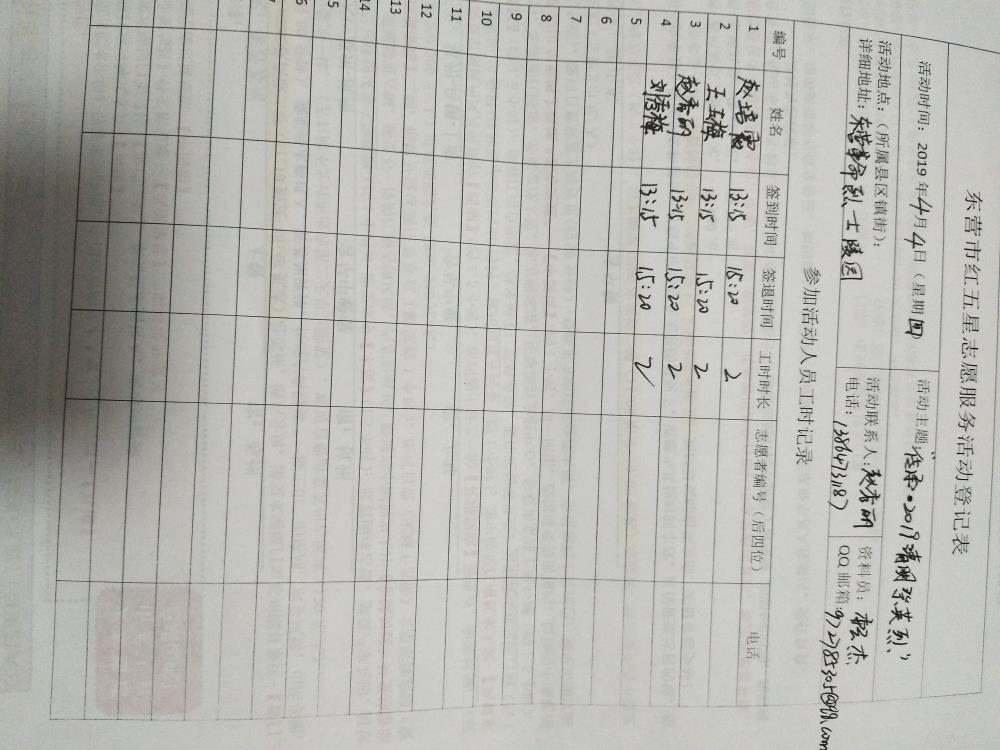 东营市红五星志愿服务活动登记表
活动时间：2019年4月4日（星期四）
活动主题：2019清明祭英烈
活动地点：（所属县区镇街）：
详细地址：东营革命烈士陵园
活动联系人：赵秀丽
电话：13864731187
资料员：
QQ邮箱：
参加活动人员工时记录
编号 姓名 签到时间 签退时间 工时时长 志愿者编号（后四位） 电话
1 13:15 15:20 2
2 王玉梅 13:15 15:20 2
3 赵秀丽 13:15 15:20 2
4 刘秀梅 13:15 15:20 2
5
6
7
8
9
10
11
12
13
14
15
16